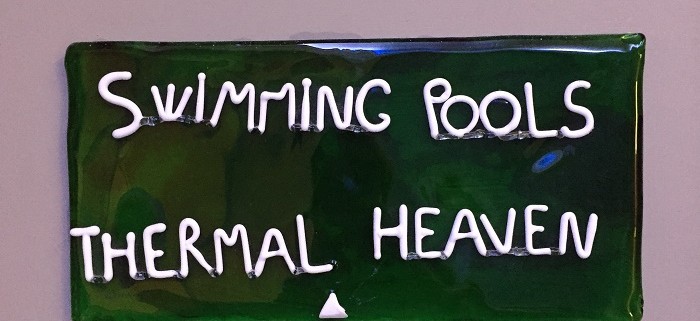 SWIMMING POOLS
THERMAL HEAVEN